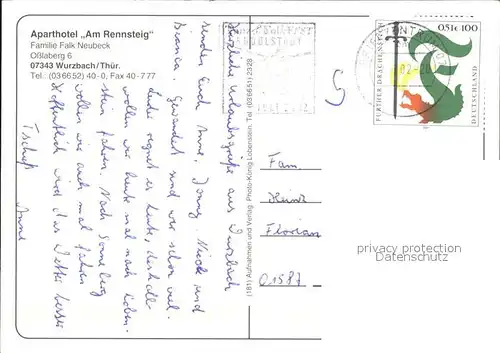 Aparthotel „Am Rennsteig"
Familie Falk Neubeck
Oßlaberg 6
07343 Wurzbach/Thür.
Tel.: (03 66 52) 40-0, Fax 40-777
Herzliche Urlaubsgrüße aus Wurzbach
senden Euch Anne, Conny, Nicole und
Bianca. Gewandert sind wir schon viel.
Leider regnet es heute, deshalb
wollen wir heute mal nach
stein fahren. Nach Sonneberg
wollen wir auch mal fahren
Hoffentlich wird das Wetter besser
Tschüß
Anne
(181) Aufnahmen und Verlag: Photo-König Lobenstein, Tel. (036651) 2328
FURTHER DRACHENSTICH
0,51€ 100
DEUTSCHLAND
Fam.
Heinz
Florian
01587
privacy protection
Datenschutz